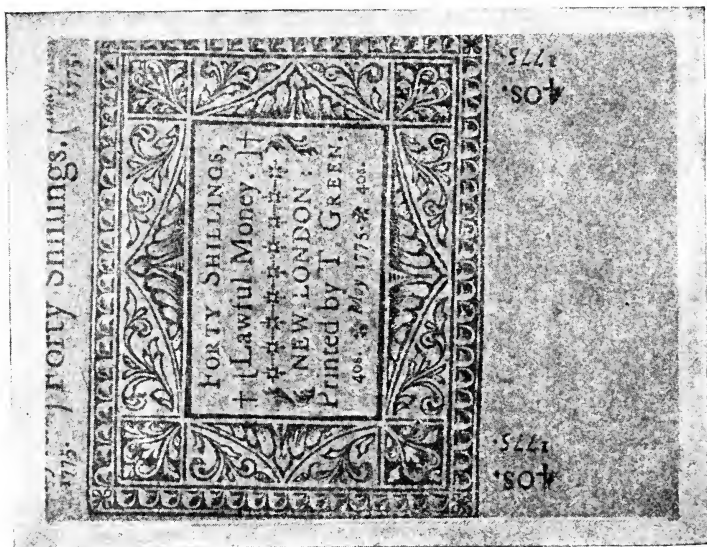 Forty Shillings.
1775. 1775.
FORTY SHILLINGS,
†[Lawful Money.]†
NEW LONDON:
Printed by T GREEN.
40s. * May 1775. * 40s.
40s.
1775.
40s.
1775.